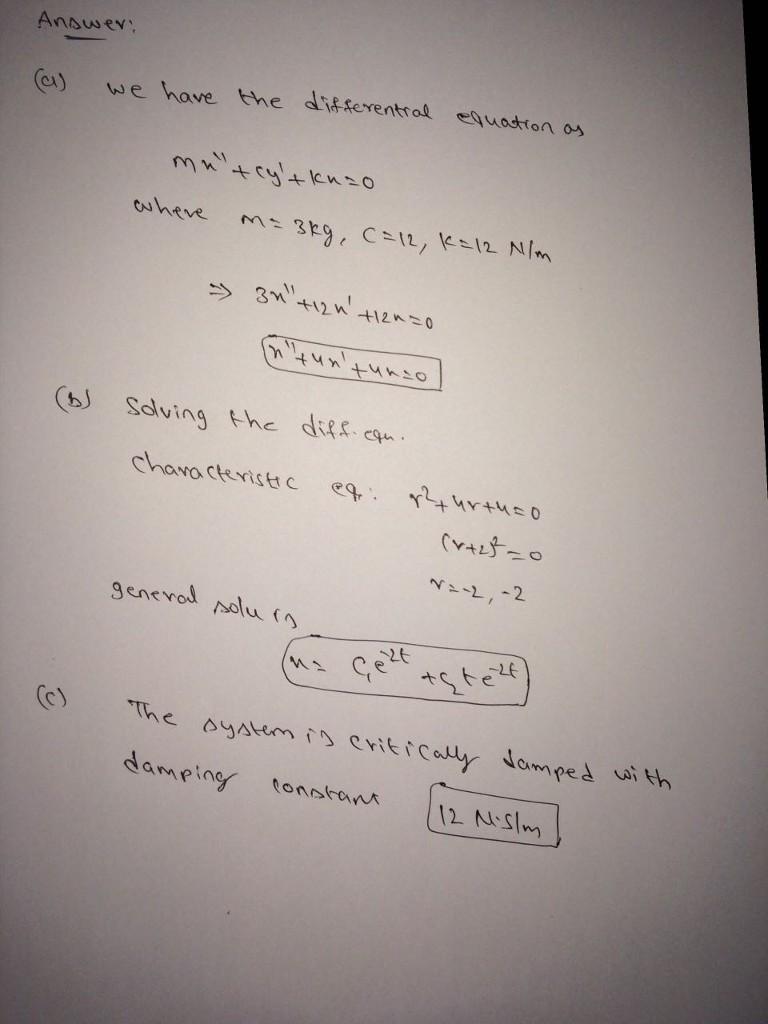 Answer:
(a) we have the differential equation as
mx'' + cy' + kx = 0
where m = 3kg, C = 12, K = 12 N/m
⇒ 3x'' + 12x' + 12x = 0
x'' + 4x' + 4x = 0
(b) Solving the diff. equ.
Characteristic eq: r² + 4r + 4 = 0
(r+2)² = 0
r = -2, -2
general solu is
x = C₁e⁻²ᵗ + C₂te⁻²ᵗ
(c) The system is critically damped with
damping constant 12 N·S/m